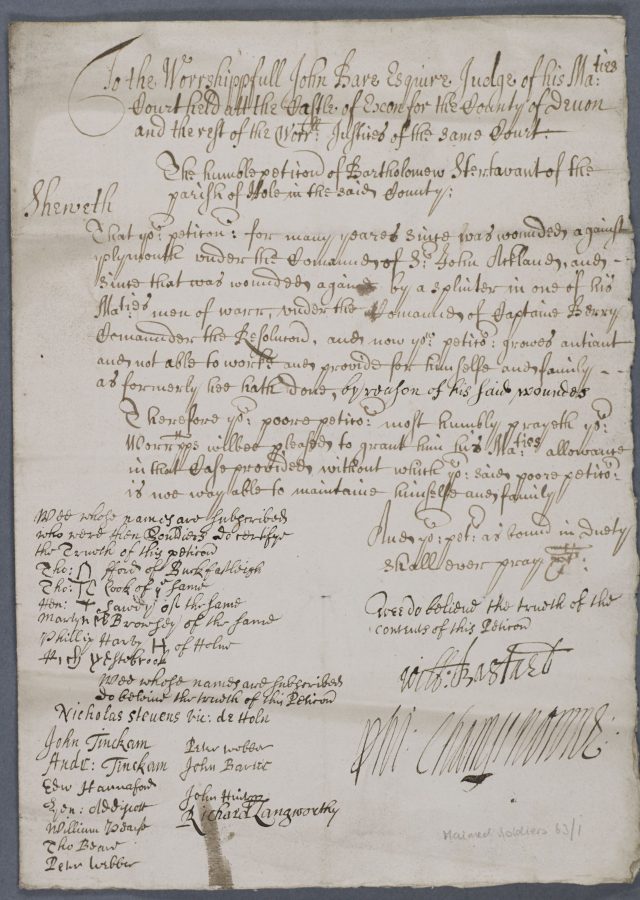 To the Worrshippfull John Bare Esquire Judge of his Ma:ties
Court held att the Castle of Exon for the County of Devon
and the rest of the Worll: Justices of the same Court:
The humble peticon of Bartholomew Stertavant of the
parish of Hole in the said County:
Sheweth
That yor: peticonr: for many yeares since was wounded against
plymouth under the Comannd of Sr: John Ackland, and --
since that was wounded againe by a splinter in one of his
Maties men of warr, under the Comannd of Captaine Berry
Comannder the Resolucon, and now yor: petitor: growes antiant
and not able to worke and provide for himselfe and family --
as formerly hee hath done, by reason of his said woundes
Therefore yor: poore petitor: most humbly prayeth yor:
Worrpps wilbee pleased to grant him his Ma:ties allowance
in that Case provided without which yor: said poore petitor:
is noe way able to maintaine himselfe and family
And yor: petr: as bound in duety
shall ever pray
Wee whose names are subscribed
who were then Souldiers do certifye
the Trueth of this peticon
Tho: fford of Buckfastleigh
Tho: TC Cook of ye same
Hen: of the same
Martyn Browsey of the same
Phillip Hart H of Holne
Westebrook
Wee do beleive the trueth of the
contents of this Peticon
Will: Bastard
Phi: Champernowne
Wee whose names are subscribed
do beleive the trueth of this Peticon
Nicholas Stevens vic: de Holn
John Tinckam
Andr: Tinckam
Edw Hannaford
William Pearse
Tho Beare
Peter Webber
Peter webber
John Barter
John
Richard Langworthy
Maimed Soldiers 63/1